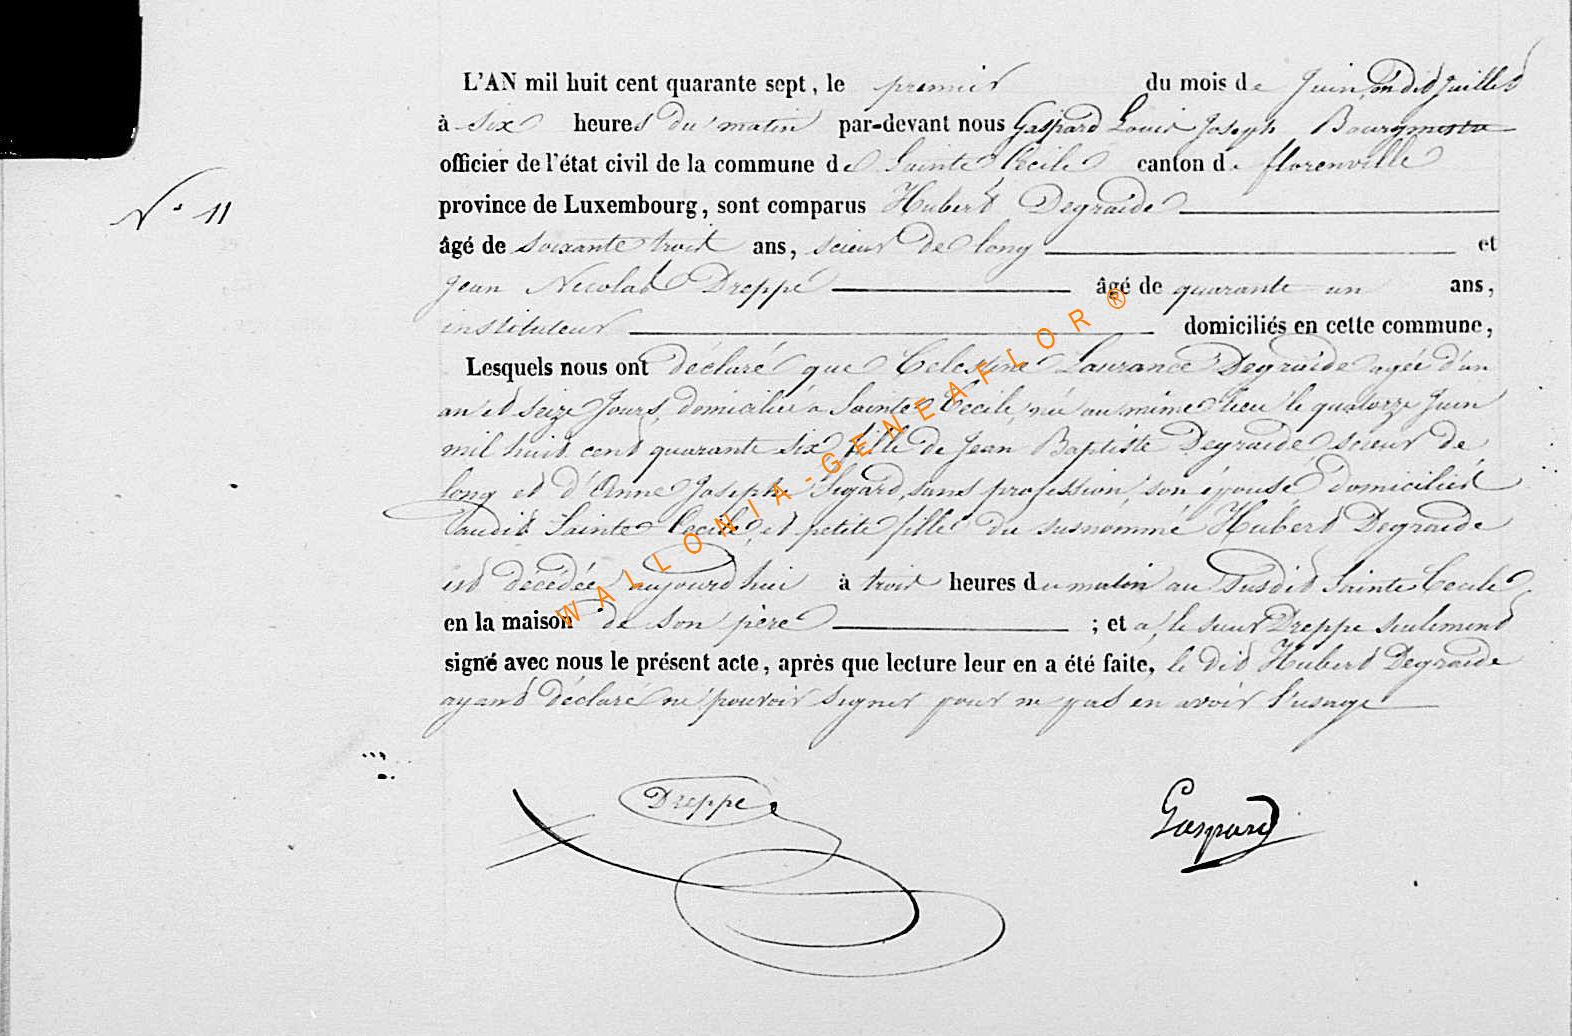 L'AN mil huit cent quarante sept, le premier du mois de Juin, on dit Juillet
à six heures du matin par-devant nous Gaspard Louis Joseph Bourgmestre
officier de l'état civil de la commune de Sainte Cécile canton de florenville
province de Luxembourg, sont comparus Hubert Degraide
N° 11
âgé de soixante trois ans, scieur de long et
Jean Nicolas Dreppe âgé de quarante un ans,
instituteur domiciliés en cette commune,
Lesquels nous ont déclaré que Celestine Laurance Degraide agée d'un
an et seize Jours, domiciliée à Sainte Cecile, née au même lieu le quatorze Juin
mil huit cent quarante six, fille de Jean Baptiste Degraide, scieur de
long et d'Anne Josephe Segard, sans profession, son épouse domiciliés
audit Sainte Cecile, et petite fille du susnommé Hubert Degraide
est décédée aujourd'hui à trois heures du matin au susdit Sainte Cecile
en la maison de son père ; et a, le sieur Dreppe seulement
signé avec nous le présent acte, après que lecture leur en a été faite, le dit Hubert Degraide
ayant déclaré ne pouvoir signer pour ne pas en avoir l'usage
Dreppe
Gaspard
WALLONIA-GENEAFLOR ®